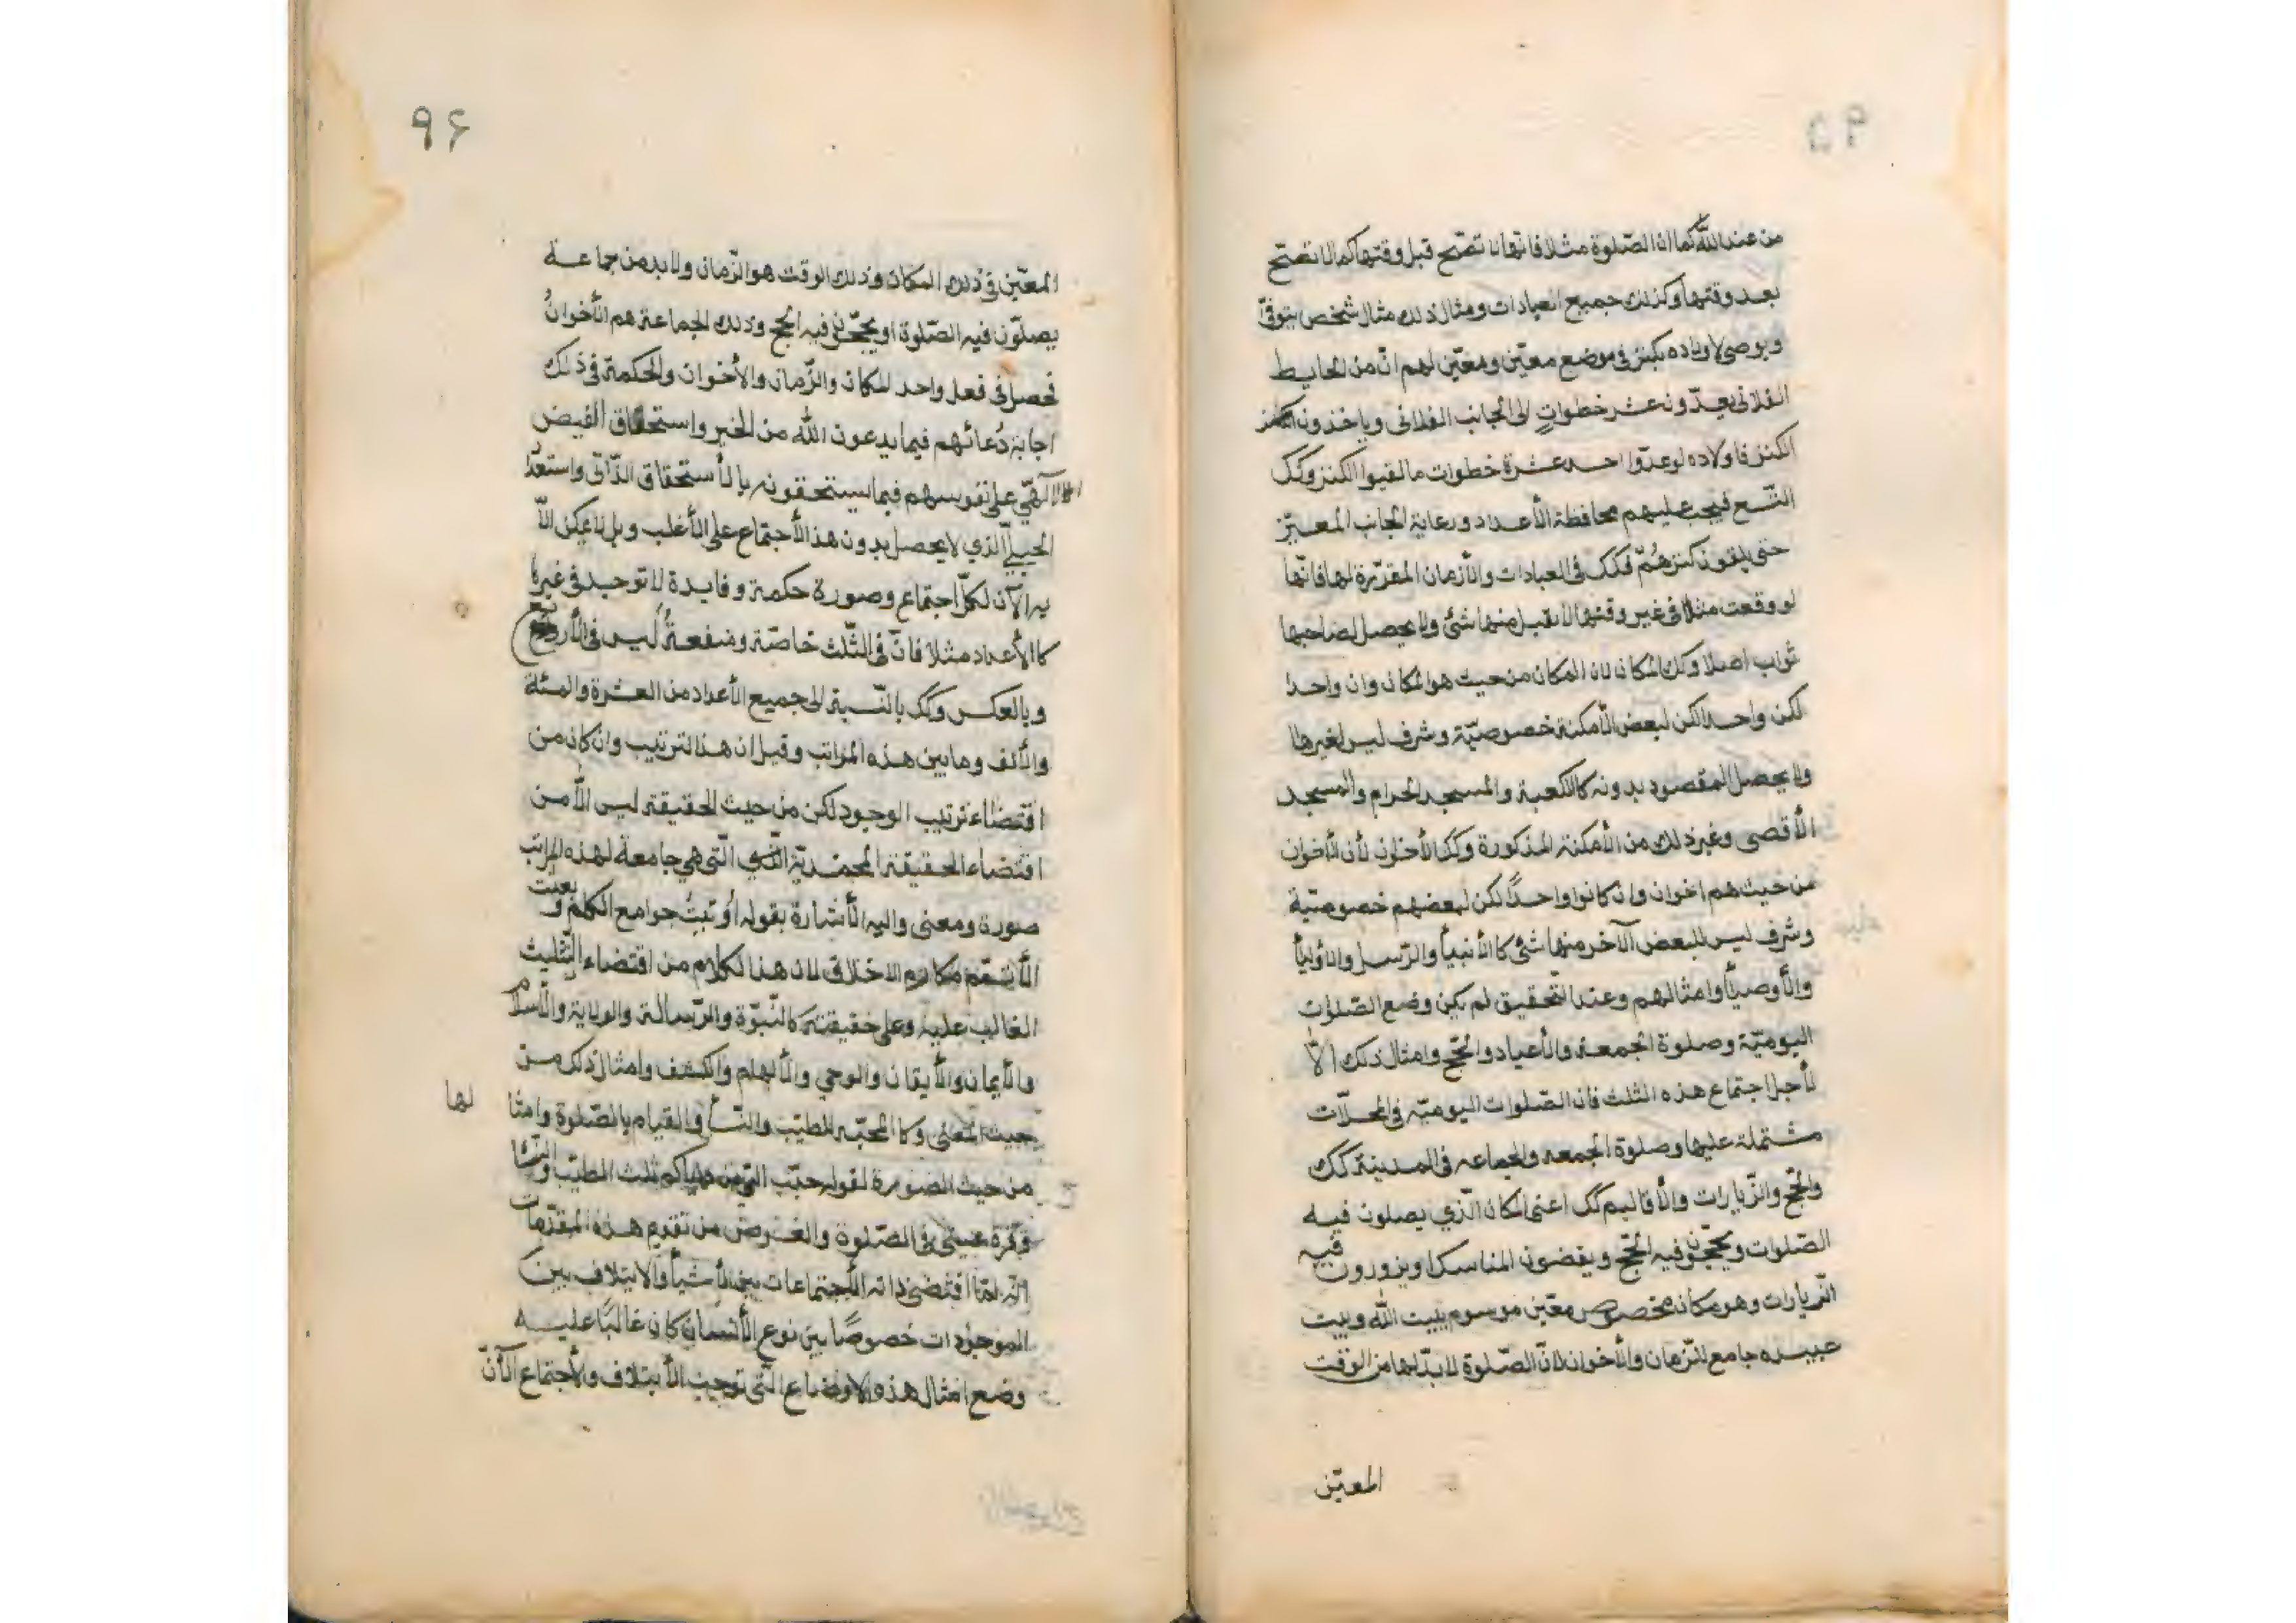 من عند الله كما ان الصّلوة مثلا فانّها لا تصّح قبل وقتها كما لا تصّح
بعد وقتها وكذلك جميع العبادات ومثال ذلك مثال شخص يتوفّى
ويوصى لاولاده بكنز فى موضع معيّن ومعيّن لهم انّ من الحايط
الفلانى يعدّون عشر خطواتٍ الى الجانب الفلانى وياخذون الكنز
الكنز فاولاده لو عدّوا احد عشرة خطوات ما لقيوا الكنز وكك
التّسع فيجب عليهم محافظة الأعداد ورعاية الجانب المعيّن
حتى يلقون كنزهُمّ فكك فى العبادات والأزمان المقرّرة لها فانّها
لو وقعت مثلا فى غير وقتها لا يقبل منها شئ ولا يحصل لصاحبها
ثواب اصلا وكك المكان لان المكان من حيث هو المكان وان واحدا
لكن واحدا لكن لبعض الأمكنة خصوصيّة وشرف ليس لغيرها
ولا يحصل المقصود بدونه كالكعبة والمسجد الحرام والمسجد
الأقصى وغير ذلك من الأمكنة المذكورة وكك الأخوان لأن الأخوان
من حيث هم اخوان وان كانوا واحدًا لكن لبعضهم خصوصيّة
وشرف ليس للبعض الآخر منها شئ كالأنبيأ والرّسل والأوليأ
والأوصيأ وامثالهم وعند التّحقيق لم يكن وضع الصّلوات
اليوميّة وصلوة الجمعة والأعياد والحّج وامثال ذلك الّا
لأجل اجتماع هذه الثلث فان الصّلوات اليوميّه فى المحلّات
مشتملة عليها وصلوة الجمعه والجماعه فى المدينة كك
والحّج والزّيارات والأقاليم كك اعنى المكان الّذي يصلون فيه
الصّلوات ويحجّون فيه الحّج ويقضون المناسك او يزورون فيه
الزّيارات وهو مكان مخصوص معيّن موسوم ببيت الله وبيت
عبيده جامع للزّمان والأخوان لانّ الصّلوة لا بدّ لها من الوقت
المعيّن
٩۶
المعيّن فى ذلك المكان وذلك الوقت هو الزّمان ولا بد من جماعة
يصلّون فيه الصّلوة او يحجّون فيه الحج وذلك الجماعة هم الأخوانُ
فحصل فى فعل واحد المكان والزّمان والأخوان والحكمة فى ذلك
اجابة دُعائهم فيما يدعون الله من الخير واستحقاق الفيض
الآلهّي على نفوسهم فيما يستحقونه بالأستحقاق الذّاتى واستعدا
الجبلّي الّذي لا يحصل بدون هذا الأجتماع على الأغلب وبل لا يمكن الّا
به الآن لكلّ اجتماع وصورة حكمة وفايدة لا توجد فى غيرها
كالأعداد مثلا فانّ فى الثّلث خاصّة ومنفعةُ ليس فى الأربع
وبالعكس وكك بالنّسبة الى جميع الأعداد من العشرة والمئة
والألف وما بين هذه المراتب وقيل ان هذا لترتيب وان كان من
اقتضاء ترتيب الوجود لكن من حيث الحقيقة ليس الّا من
اقتضاء الحقيقة المحمّديّة الّتى هي جامعة لهذه المراتب
صورة ومعنى واليه الأشارة بقوله أوتيتُ جوامع الكلم وبعثت
لأتمّم مكارم الاخلاق لان هذا لكلام من اقتضاء التّثليث
الغالب عليه وعلى حقيقته كالنّبوّة والرّسالة والولاية والأسلام
والأيمان والأيقان والوحي والألهام والكشف وامثال ذلك من
حيث المعنى وكالمحبّه للطيّب والنّسأ والقيام بالصّلوة وامثا لها
من حيث الصّورة لقوله حبّب الىّ من دنياكم ثلث الطيّب والنّسا
وقرّة عينى فى الصّلوة والغرض من تقديم هذه المقدّمات
انّه لمّا اقتضى ذاته الأجتماعات بين الأشيأ والايتلاف بين
الموجودات خصوصًا بين نوع الأنسان كان غالبًا عليه
وضع امثال هذه الاوضاع الّتى توجب الأيتلاف والأجتماع الآنّ